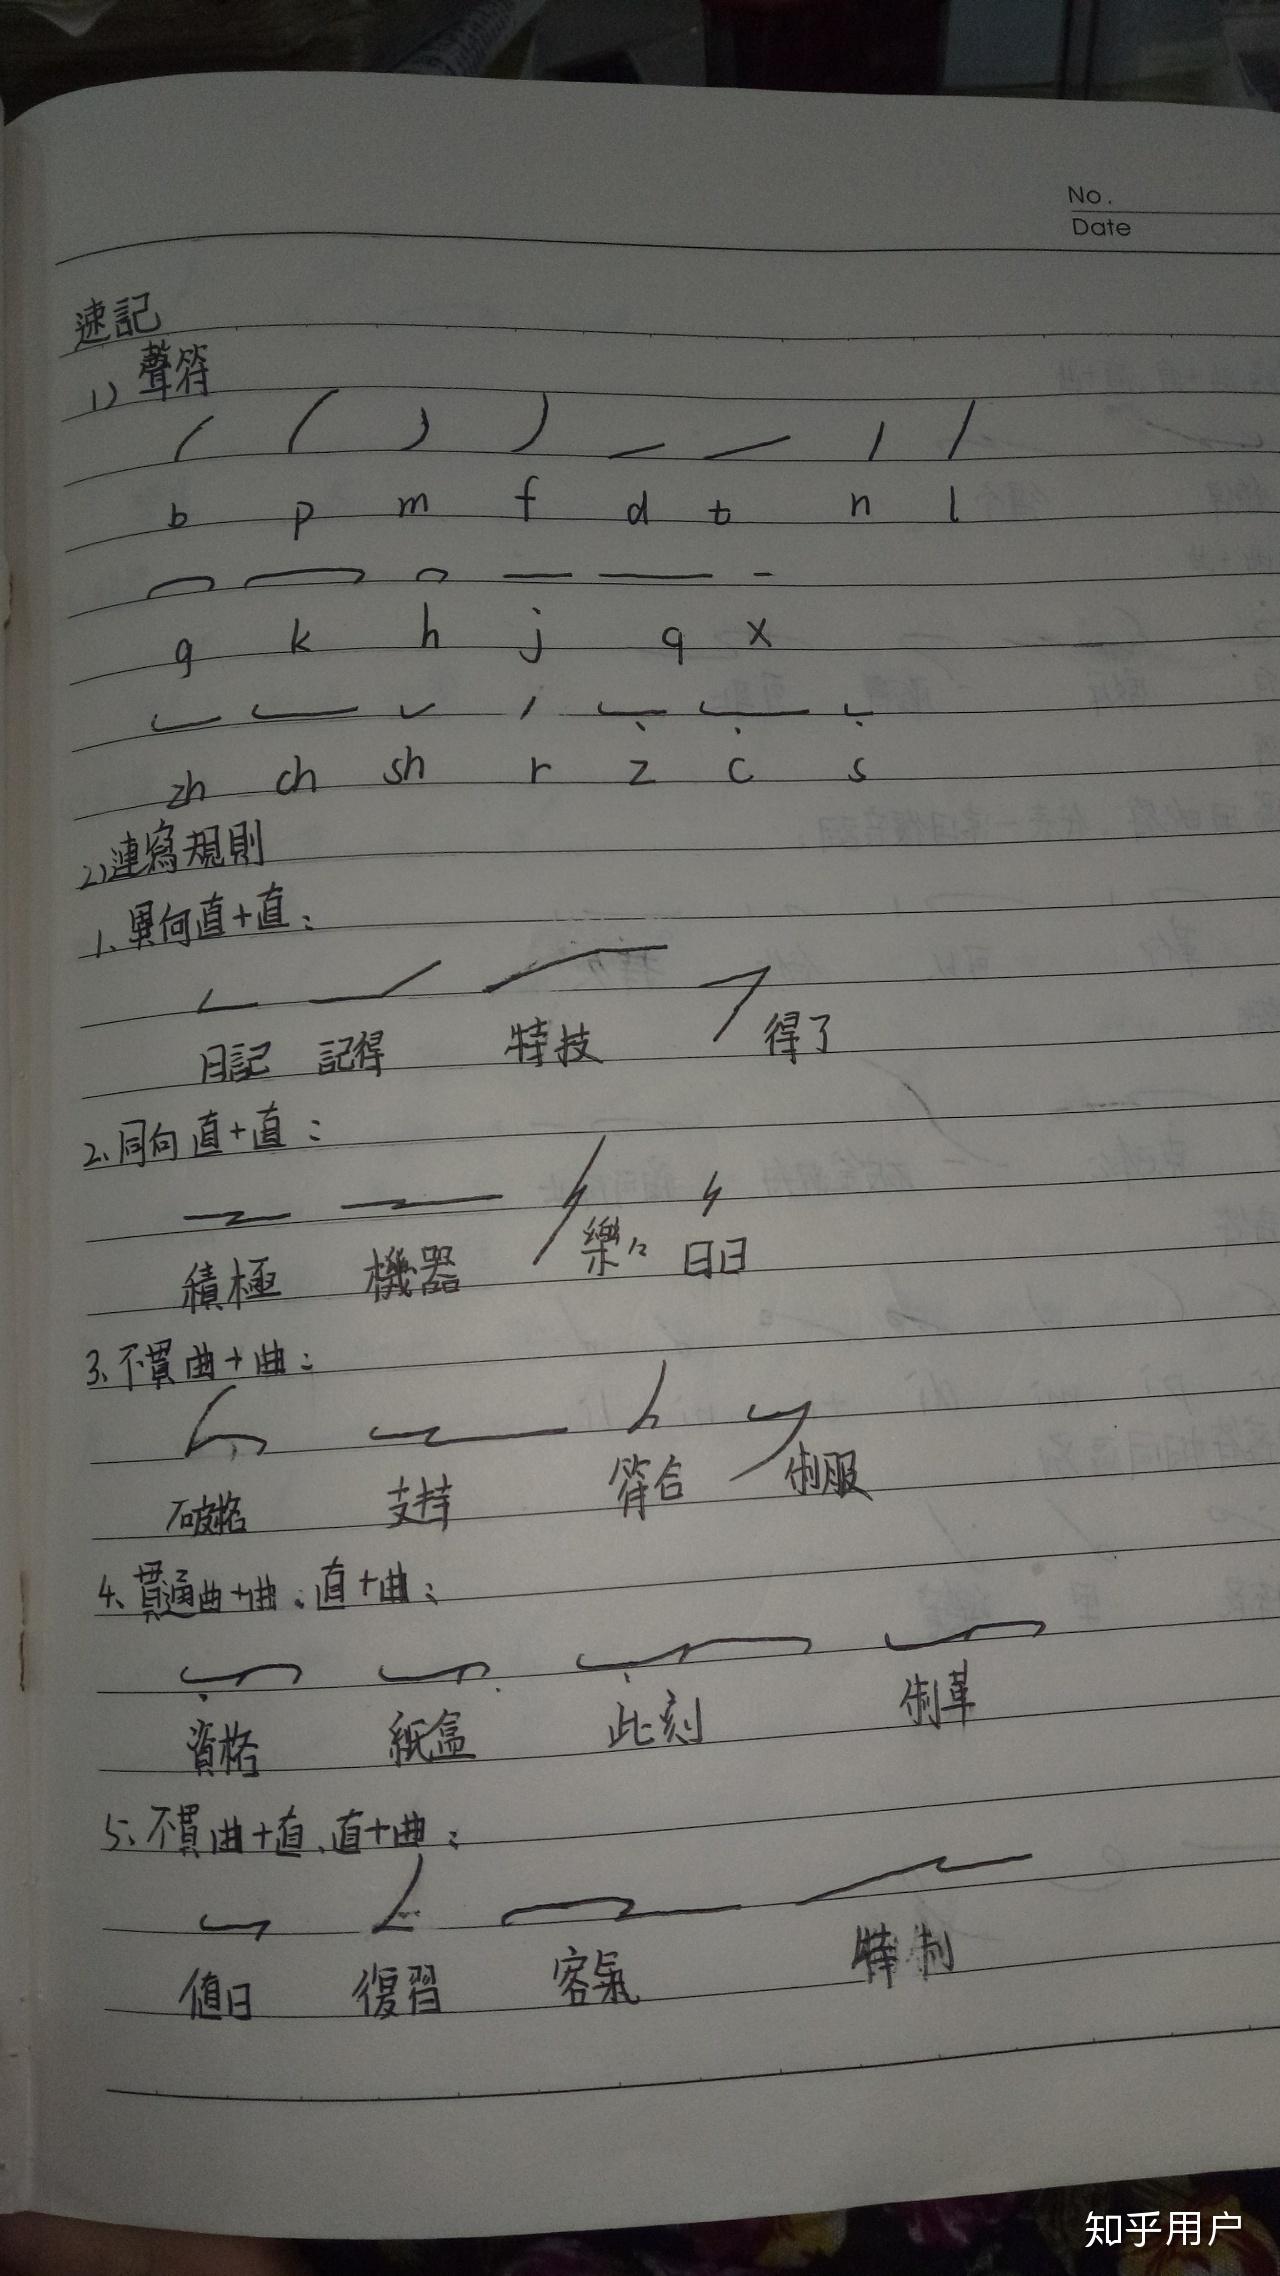 No.
Date
速記
1) 聲符
b p m f d t n l
g k h j q x
zh ch sh r z c s
2) 連寫規則
1、異向直+直：
日記 記得 特技 得了
2、同向直+直：
積極 機器 樂々 日日
3、不貫曲+曲：
破格 支持 符合 制服
4、貫通曲+曲、直+曲：
資格 紙盒 此刻 制革
5、不貫曲+直、直+曲：
值日 復習 客氣 特制
知乎用户